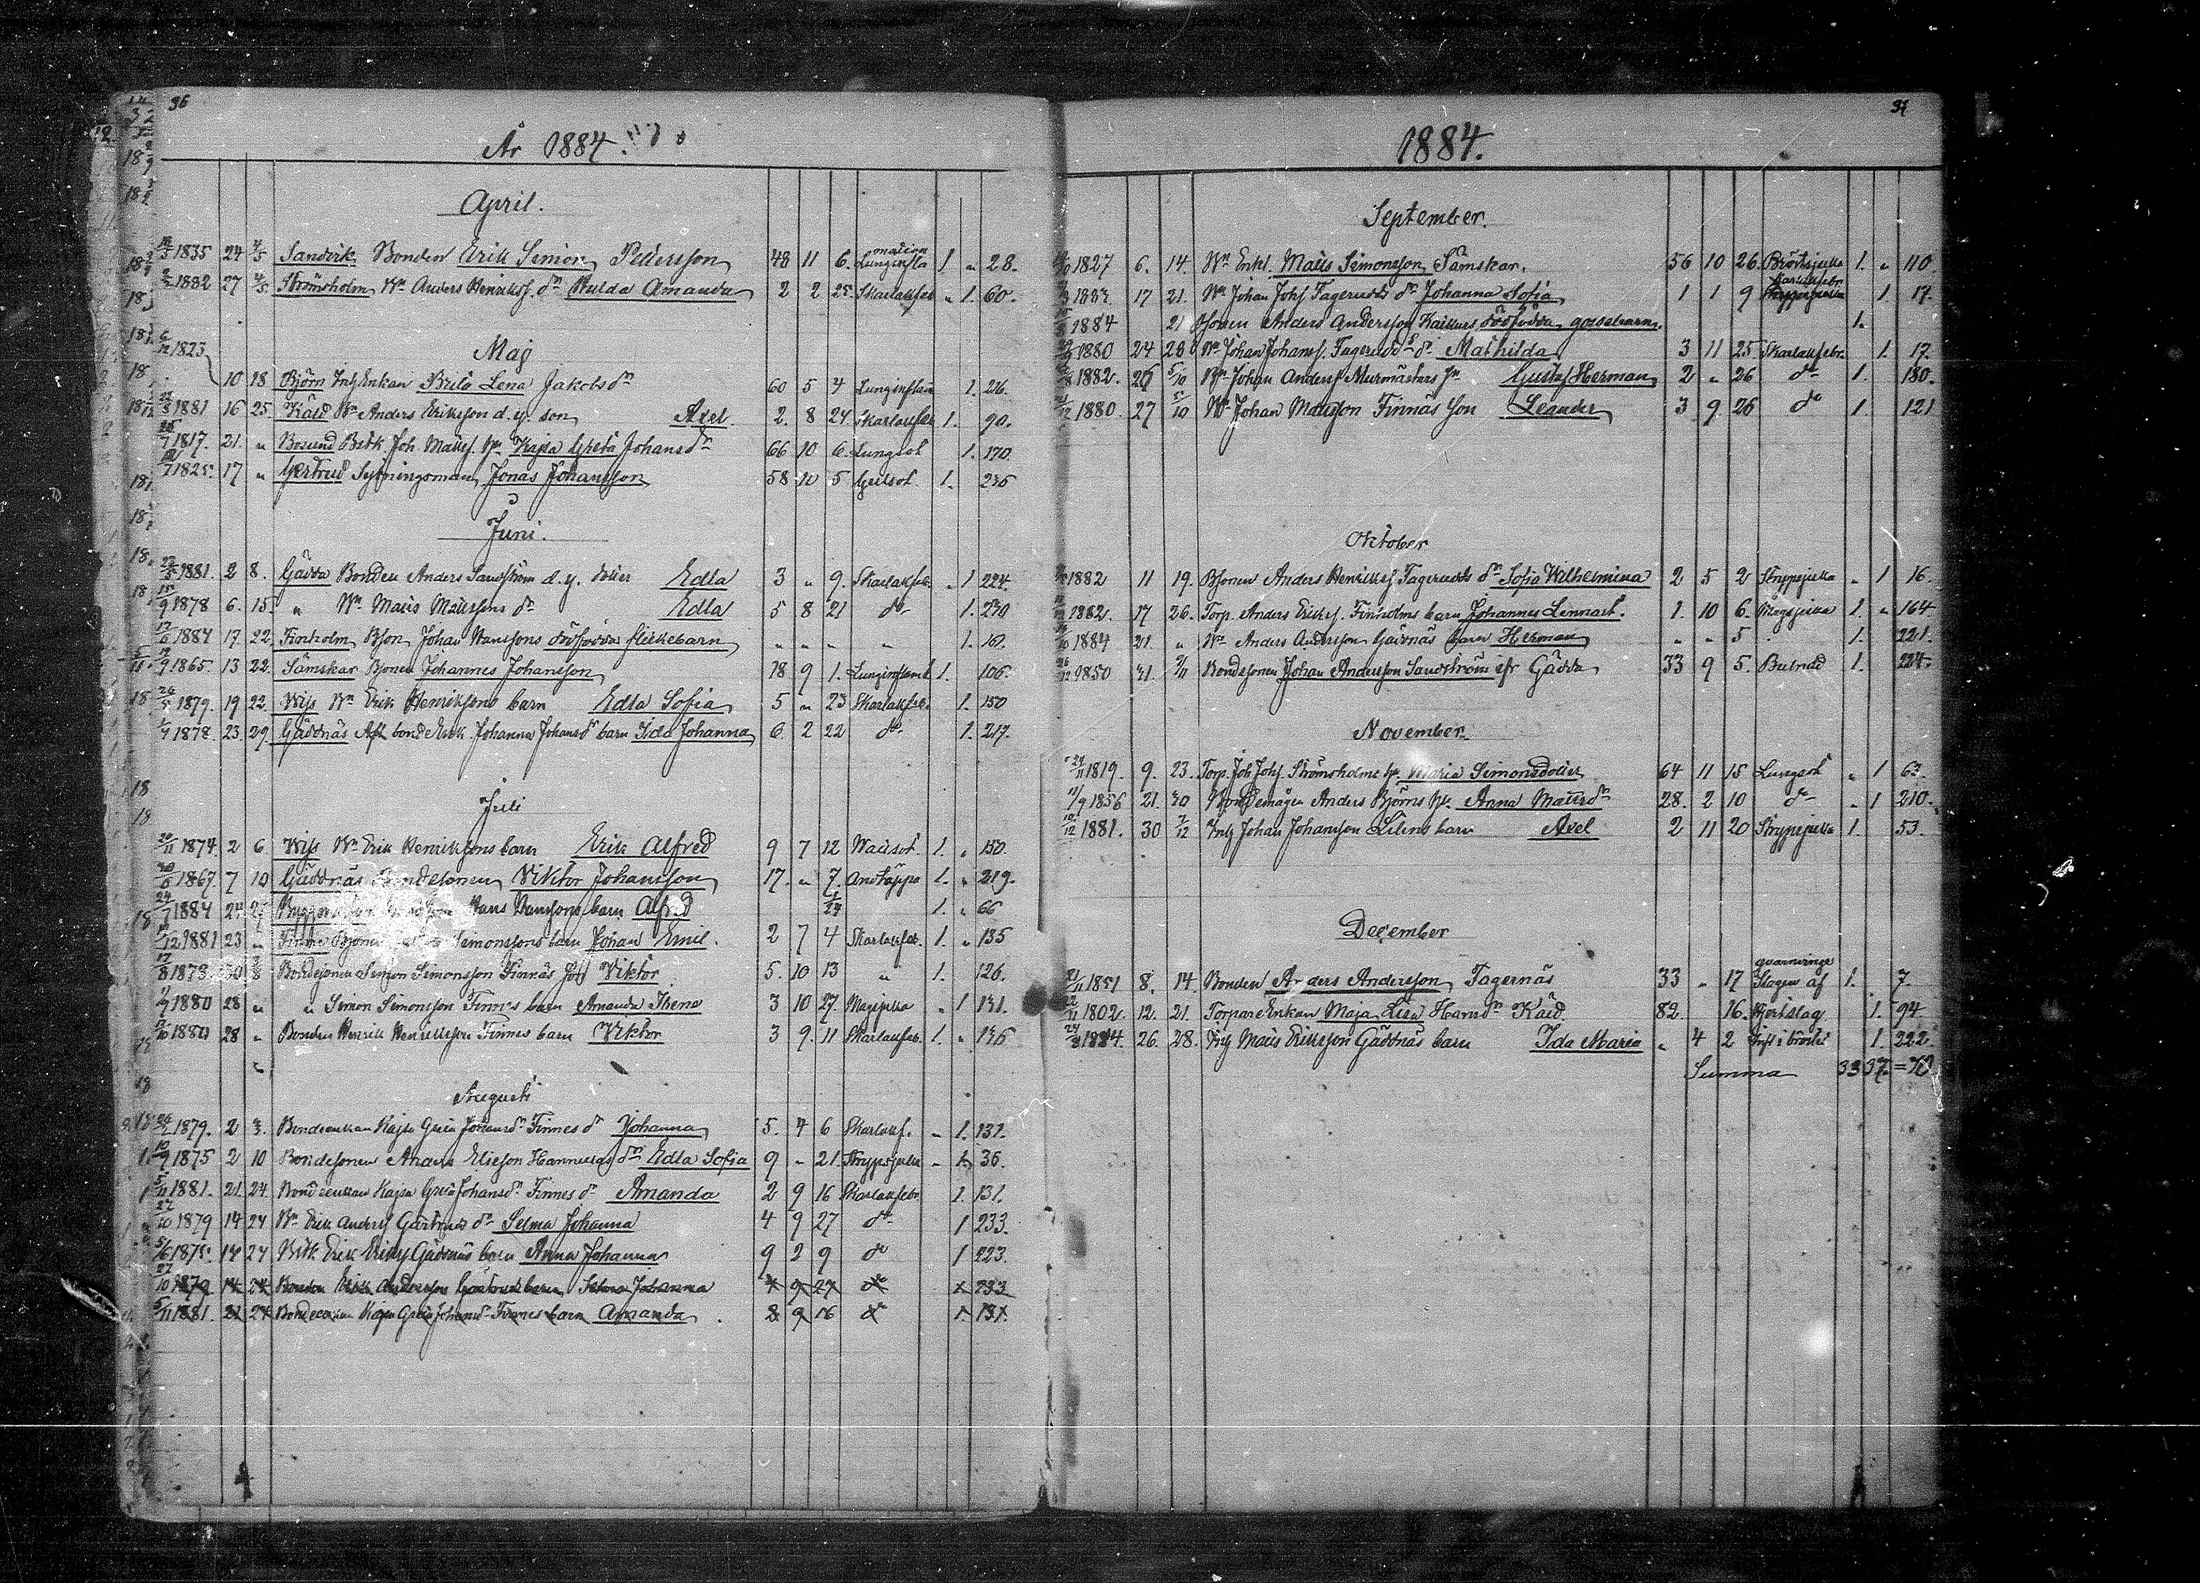 36
År 1884.
April.
1835 24 4/5 Sandvik Bonden Erik Simon Pettersson 48 11 6. Lunginfla mation 1 „ 28.
1882 27 4/5 Strömsholm Bn Anders Henrikss. dr Hulda Amanda 2 2 25. Skarlakfeb „ 1. 60.
Maj
6/12 1823 10 18 Björn Enkan Brita Lena Jakobsdr 60 5 4 Lunginflam 1. 226.
1881 16 25. Kåld Bn Anders Eriksson d.y. son Axel. 2. 8 24. Skarlakfeb 1. 90.
1817. 21. „ Bosund Joh. Matts. Kajsa Greta Johansdr 66 10 6. Lungsot 1. 170
1825. 17 „ Gertrud Sytningsman Jonas Johansson 58 10 5 Gulsot. 1. 236
Juni.
1881. 2 8. Gädda Bonden Anders Sandström d.y. dotter Edla 3 „ 9. Skarlakfeb. „ 1 224.
15/9 1878 6. 15 „ Bn Matts Mattssons dr Edla 5 8 21 do 1. 230
1884 17 22. Finholm Bson. Johan Hanssons dödfödda flickebarn „ „ „ „ 1. 161.
1865 13 22. Sämskar Bjonen Johannes Johansson 18 9 1. Lunginflamt 1. 106.
1879. 19 22. Wiss Bn Erik Henrikssons barn Edla Sofia 5 „ 23 Skarlakfeb. 1. 150
1/4 1878. 23. 29. Gäddnäs Afl bond Enk. Johanna Johansdr barn Ida Johanna 6 2 22 do 1. 217.
Juli
20/11 1874. 2 6 Wiss Bn Erik Henrikssons barn Erik Alfred 9 7 12 Wattsot. 1. „ 150.
30/6 1867. 7 10 Gäddnäs Bondesonen Viktor Johansson 17. „ 7. Andtäppa 1. „ 219.
24/7 1884 24 27 Hans Hanssons barn Alfred 1/24 1. „ 66
1881 23 „ Simonssons barn Johan Emil. 2 7 4 Skarlakfeb. 1. „ 135
17/8 1878. 30 3/8 Bondesonen Simon Simonsson Finnäs son Viktor 5. 10 13 „ 1. 126.
1880 28 „ „ Simon Simonsson Finnäs barn Amanda Irene 3 10 27. Magsjuka „ 1 131.
1880 28 „ Bonden Henrik Henriksson Finnes barn Viktor 3 9. 11 Skarlakfeb. 1. „ 136
Augusti
1879. 2 3. Bondeenkan Kajsa Greta Johansdr Finnes dr Johanna 5. 4 6 Skarlakf. „ 1. 131.
1875 2 10 Bondesonen Anders Eliesson Hannulas dr Edla Sofia 9 „ 21. Strypsjuka „ 1. 36.
5/11 1881. 21. 24. Bondeenkan Kajsa Greta Johansdr Finnes dr Amanda 2 9 16 Skarlakfebr 1. 131.
27/10 1879 14 24 Bn Erik Anderss Gertruds dr Selma Johanna 4 9 27 do 1 233.
5/6 1875. 14 24 Erik Erikss Gäddnäs barn Anna Johanna 9 2 9 do 1 223.
27/10 1879 14 24 Bonden Erik Andersson Gertruds barn Selma Johanna 4 9 27 do 1 233.
5/11 1881. 21 24 Bondeenkan Kajsa Greta Johansdr Finnes barn Amanda 2 9 16 do 1. 131.
37
1884.
September.
1827 6. 14. Bn Enkl. Matts Simonsson Sämskar. 56 10 26. Bröstsjuka 1. „ 110.
1883. 17 21. Bn Johan Johss Fagerudds dr Johanna Sofia 1 1 9 Skarlakfebr 1. 17.
1884 21 Bsonen Anders Andersson dödfödda gossebarn. 1.
1880 24 28 Bn Johan Johanss. Fagerudds dr Mathilda 3 11 25 Skarlakfebr. 1. 17.
1882. 26 5/10 Bn Johan Anderss Murmästars sn Gustaf Herman 2 „ 26 do 1. 180.
1880. 27 5/10 Bn Johan Mattsson Finnäs son Leander 3 9 26 do 1. 121
Oktober
1882 11 19. Bsonen Anders Henrikss Fagerudds dr Sofia Wilhelmina 2 5 2 Strypsjuka „ 1 16.
1882. 17 26. Torp. Anders Erikss. Finholms barn Johannes Linnart. 1. 10 6. Magsjuka 1. „ 164
1884 21. „ Bn Anders Andersson Gäddnäs barn Herman „ „ 5 1. 221.
26/12 1850 31. 9/11 Bondesonen Johan Andersson Sandström ifr Gädda 33 9 5. 1. 224.
November.
24/11 1819. 9. 23. Torp. Joh Johss. Strömsholms Maria Simonsdotter 64 11 15 Lungsot „ 1 62.
11/9 1856 21. 30 Bondemågen Anders Björns Anna Mattsdr 28. 2 10 do „ 1 210.
10/12 1881. 30 7/12 Johan Johansson Lilens barn Axel 2 11 20 Strypsjuka 1. 53.
December
1851 8. 14. Bonden Anders Andersson Fagernäs 33 „ 17 Slagen af qvarnvinge 1. 7.
1802. 12. 21. Torpare Enkan Maja Lisa Hansdr Kåld. 82. 16. Hjertslag 1. 94
1884. 26. 28. Matts Eriksson Gäddnäs barn Ida Maria „ 4 2 bröstet 1. 222.
Summa 33 37 = 70